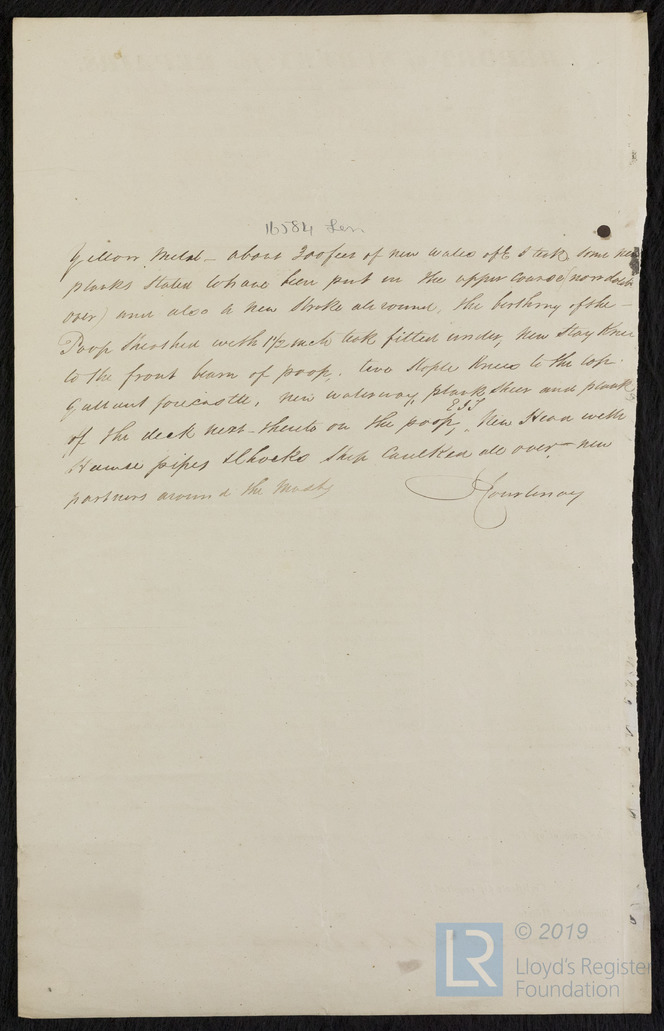 16584 Lon
Yellow Metal - about 300 feet of new wales of E I teak, some new
planks stated to have been put in the upper course (now doubled
over) and also a new stroke all round, the birthing of the
Poop sheathed with 1½ inch teak fitted under, New Stay Knee
to the front beam of poop, two staple Knees to the top
gallant forecastle, new waterway, plank sheer and plank
of the deck next thereto on the poop, E I T New Head with
Hawse pipes & Chocks Ship Caulked all over - new
partners around the Masts
Courtenay
© 2019
LR
Lloyd's Register
Foundation